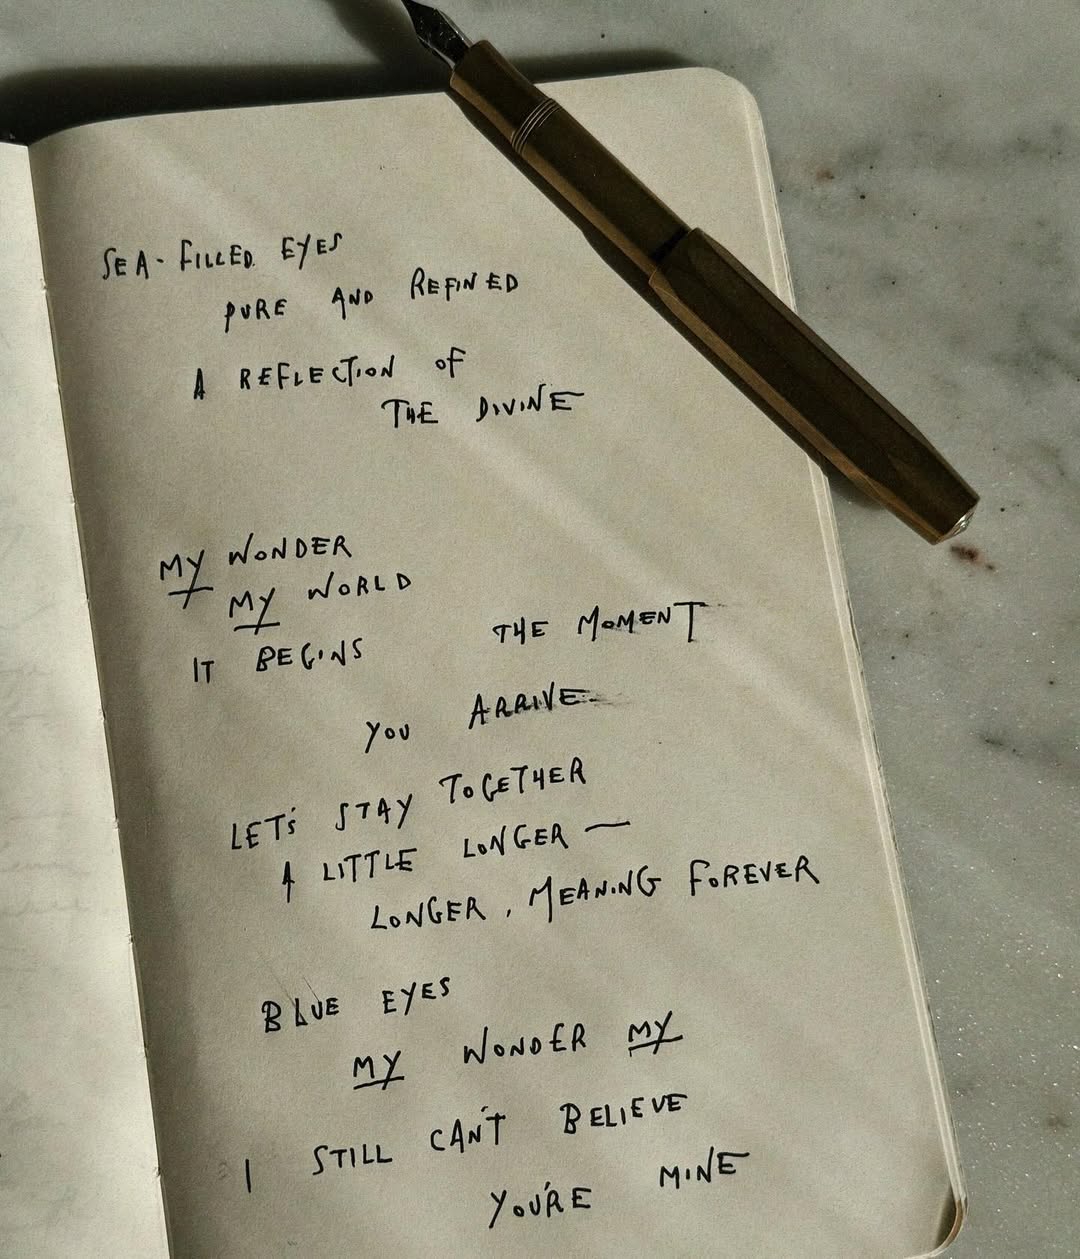 SEA-FILLED EYES
PURE AND REFINED
A REFLECTION OF
THE DIVINE
MY WONDER
MY WORLD
IT BEGINS THE MOMENT
YOU ARRIVE
LET'S STAY TOGETHER
A LITTLE LONGER —
LONGER, MEANING FOREVER
BLUE EYES
MY WONDER MY
I STILL CAN'T BELIEVE
YOU'RE MINE